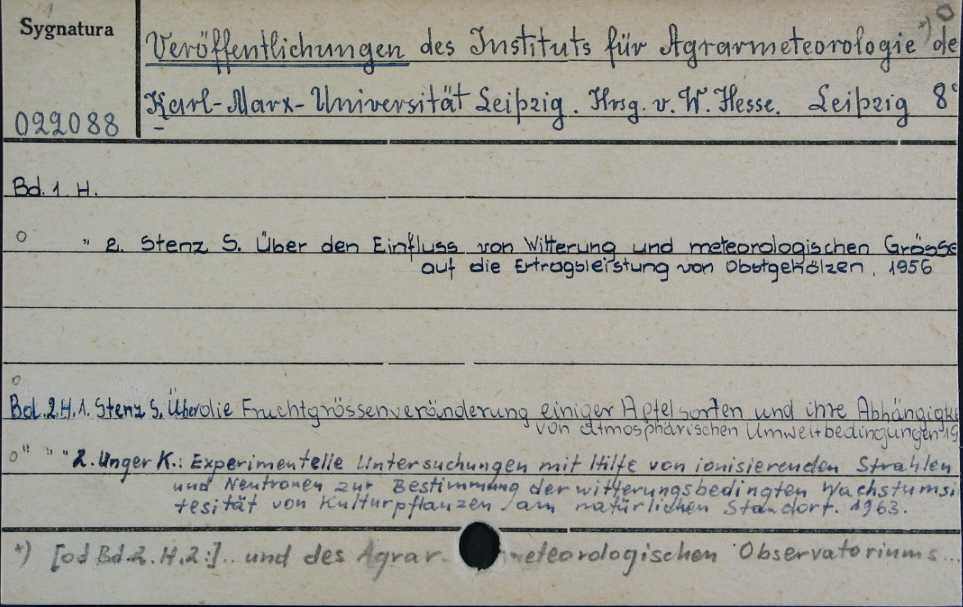 Sygnatura
Veröffentlichungen des Instituts für Agrarmeteorologie *) de
Karl-Marx-Universität Leipzig. Hrsg. v. W. Hesse. Leipzig 8°
022088
Bd. 1. H.
o " 2. Stenz S. Über den Einfluss von Witterung und meteorologischen Grösse
auf die Ertragsleistung von Obstgehölzen. 1956
o
Bd. 2 H. 1. Stenz S. Über die Fruchtgrössenveränderung einiger Apfelsorten und ihre Abhängigke
von atmosphärischen Umweltbedingungen 19
o " " " 2. Unger K.: Experimentelle Untersuchungen mit Hilfe von ionisierenden Strahlen
und Neutronen zur Bestimmung der witterungsbedingten Wachstumsi
tesität von Kulturpflanzen am natürlichen Standort. 1963.
*) [od Bd. 2. H. 2:].. und des Agrar meteorologischen Observatoriums...